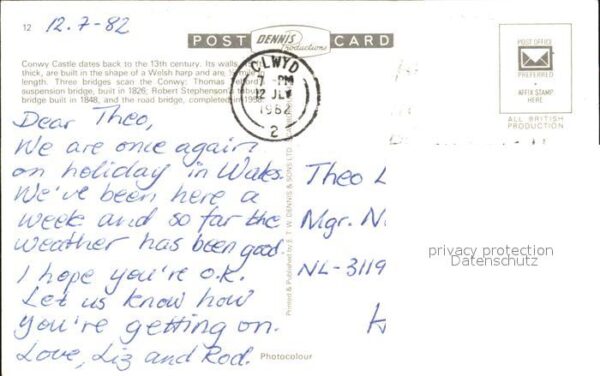 12
12.7-82
POST
DENNIS
Productions
CARD
Conwy Castle dates back to the 13th century. Its walls,
thick, are built in the shape of a Welsh harp and are ½ mile
length. Three bridges scan the Conwy: Thomas Telford
suspension bridge, built in 1826; Robert Stephenson's tubu
bridge built in 1848; and the road bridge, completed in 1958.
CLWYD
7 - PM
12 JLY
1982
2
POST OFFICE
PREFERRED
AFFIX STAMP
HERE
ALL BRITISH
PRODUCTION
Dear Theo,
We are once again
on holiday in Wales.
We've been here a
week and so far the
weather has been good.
I hope you're o.k.
Let us know how
you're getting on.
Love, Liz and Rod.
Printed & Published by E. T. W. DENNIS & SONS LTD.
Photocolour
Theo L
Mgr. N
NL-3119
privacy protection
Datenschutz